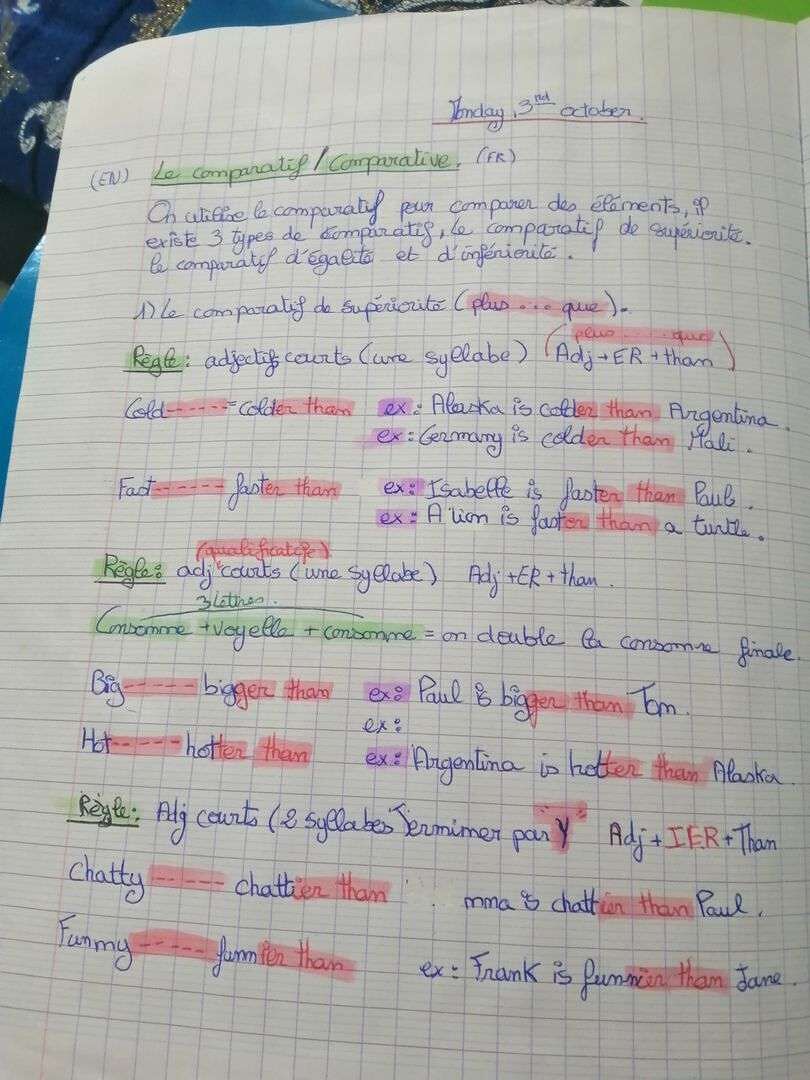 Monday, 3nd october.
(EN) Le comparatif / Comparative. (FR)
On utilise le comparatif pour comparer des éléments, il
existe 3 types de comparatif, le comparatif de supériorité.
le comparatif d'égalité et d'infériorité.
1) Le comparatif de supériorité (plus ... que).
(plus ..... que)
Règle: adjectifs courts (une syllabe) (Adj + ER + than)
Cold ------ = colder than ex: Alaska is colder than Argentina.
ex: Germany is colder than Mali.
Fast ------ faster than ex: Isabelle is faster than Paul.
ex: A lion is faster than a turtle.
(qualificatifs)
Règle: adj courts (une syllabe) Adj + ER + than.
3 lettres.
Consonne + voyelle + consonne = on double la consonne finale.
Big ----- bigger than ex: Paul is bigger than Tom.
ex:
Hot ----- hotter than ex: Argentina is hotter than Alaska
Règle: Adj courts (2 syllabes Termimer par "Y" Adj + IER + Than
Chatty ----- chattier than mma is chattier than Paul.
Funmy ----- funnier than ex: Frank is funnier than Jane.